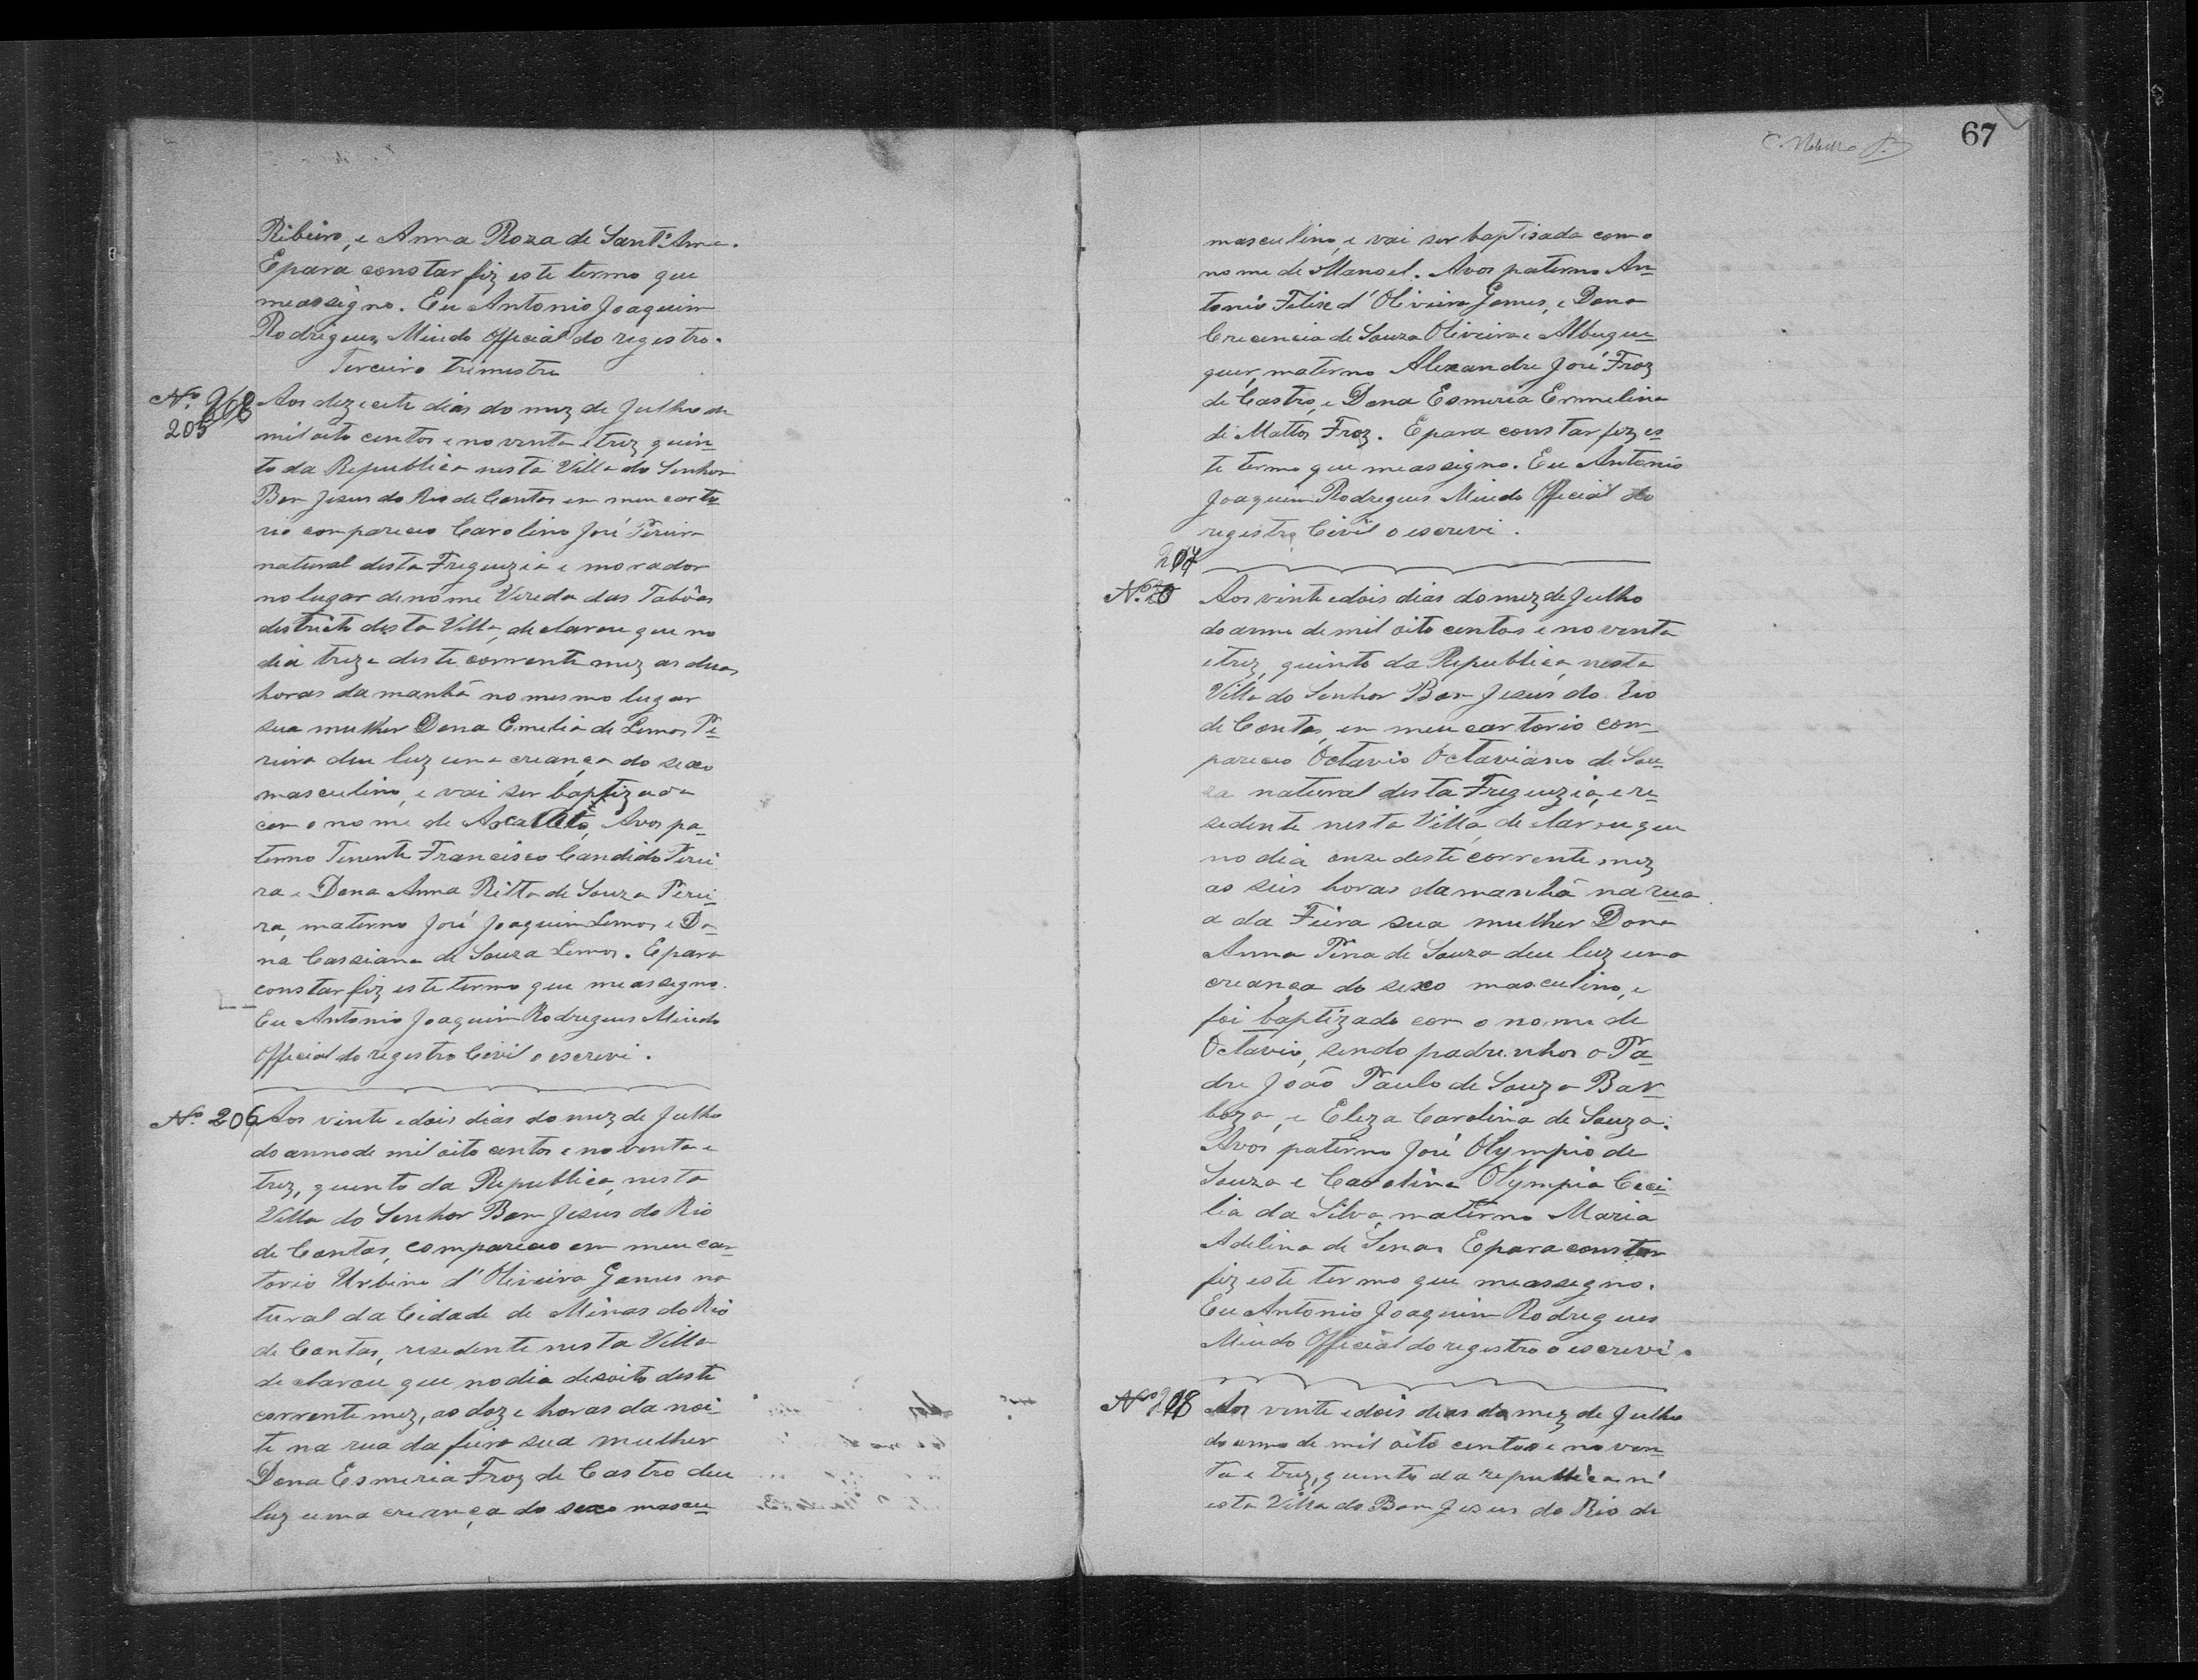 Ribeiro, e Anna Roza de Sant'Anna.
E para constar fiz este termo que
me assigno. Eu Antonio Joaquim
Rodrigues Miudo Official do registro.
Terceiro trimestre
Nº 205
Aos dezesete dias do mez de Julho de
mil oito centos e noventa e trez quin-
to da Republica nesta Villa do Senhor
Bom Jesus do Rio de Contas em meu carto-
rio compareceo Carolino José Pereira
natural desta Freguezia e morador
no lugar de nome Vereda das Tabôas
districto desta Villa, declarou que no
dia treze deste corrente mez as duas
horas da manhã no mesmo lugar
sua mulher Dona Emelia de Lemos Pe-
reira deu luz uma creança do sexo
masculino, e vai ser baptizada
com o nome de Avos pa-
terno Tenente Francisco Candido Perei-
ra e Dona Anna Ritta de Souza Perei-
ra, materno José Joaquim Lemos e Do-
na Cassiana de Souza Lemos. E para
constar fiz este termo que me assegno.
Eu Antonio Joaquim Rodrigues Miudo
Official do registro Civil o escrevi.
Nº 206 Aos vinte e dois dias do mez de Julho
do anno de mil oito centos e noventa e
trez, quinto da Republica, nesta
Villa do Senhor Bom Jesus do Rio
de Contas, compareceo em meu car-
torio Urbino d'Oliveira Gomes na
tural da Cidade de Minas do Rio
de Contas, resedente nesta Villa
declarou que no dia desoito deste
corrente mez, as doze horas da noi-
te na rua da feira sua mulher
Dona Esmeria Froz de Castro deu
luz uma creança do sexo mascu-
67
masculino, e vai ser baptisada com o
nome de Manoel. Avos paterno An-
tonio Felix d'Oliveira Gomes, e Dona
Crecencia de Souza Oliveira e Albuquer-
quer, materno Alexandre José Froz
de Castro, e Dona Esmeria Ermelina
de Mattos Froz. E para constar fiz es-
te termo que me assigno. Eu Antonio
Joaquim Rodrigues Miudo Official do
registro Civil o escrevi.
207
Nº Aos vinte e dois dias do mez de Julho
do anno de mil oito centos e noventa
e trez, quinto da Republica, nesta
Villa do Senhor Bom Jesus do Rio
de Contas, em meu cartorio com-
pareceo Octavio Octaviano de Sou-
za natural desta Freguezia, e re-
sedente nesta Villa, declarou que
no dia onze deste corrente mez
as seis horas da manhã na rua
a da Feira sua mulher Dona
Anna Pina de Souza deu luz uma
creança do sexo masculino, e
foi baptizado com o nome de
Octavio, sendo padrinhos o Pa-
dre João Paulo de Souza Bar-
boza, e Eleza Carolina de Souza.
Avos paterno José Olympio de
Souza e Carolina Olympia Ceci-
lia da Silva, materno Maria
Adelina de Senas E para constar
fiz este termo que me assegno.
Eu Antonio Joaquim Rodrigues
Miudo Official do registro o escrevi.
Nº 208 Aos vinte e dois dias do mez de Julho
do anno de mil oito centos e noven-
ta e trez, quinto da republica n'
esta Villa do Bom Jesus do Rio de